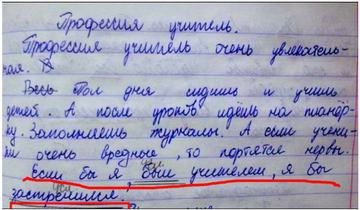 Профессия учитель.
Профессия учитель очень увлекатель-
ная.
Весь Пол дня сидишь и учишь
детей. А после уроков идёшь на планёр-
ку. Заполняешь журналы. А если учени-
ки очень вредные, то портятся нервы.
Если бы я, был учителем, я бы
застрелился.